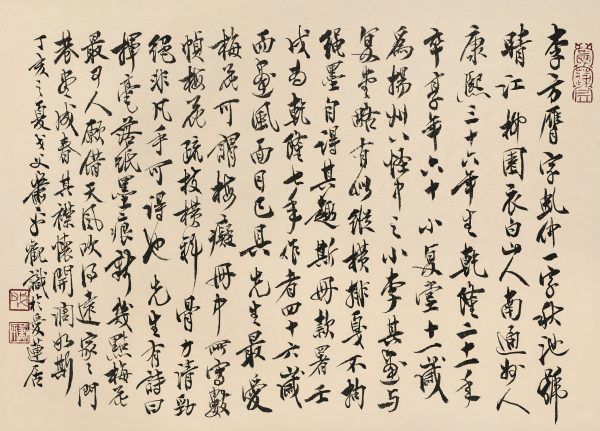 李方膺字虬仲一字秋池號
晴江抑園衣白山人南通州人
康熙三十六年生乾隆二十一年
卒享年六十小复堂十一歲
為揚州八怪中之小李其畫與
复堂略有似縱橫排戛不拘
繩墨自得其趣斯冊款署壬
戌為乾隆七年作者四十六歲
而畫風面目已具先生最愛
梅花可謂梅癡冊中所寫數
幀梅花疏枝橫斜骨力清勁
絕非凡手可得也先生有詩曰
揮毫落紙墨痕新幾點梅花
最可人願借天風吹得遠家々門
巷盡成春其襟懷開闊如斯
丁亥之夏戈父蕭平觀識於愛蓮居